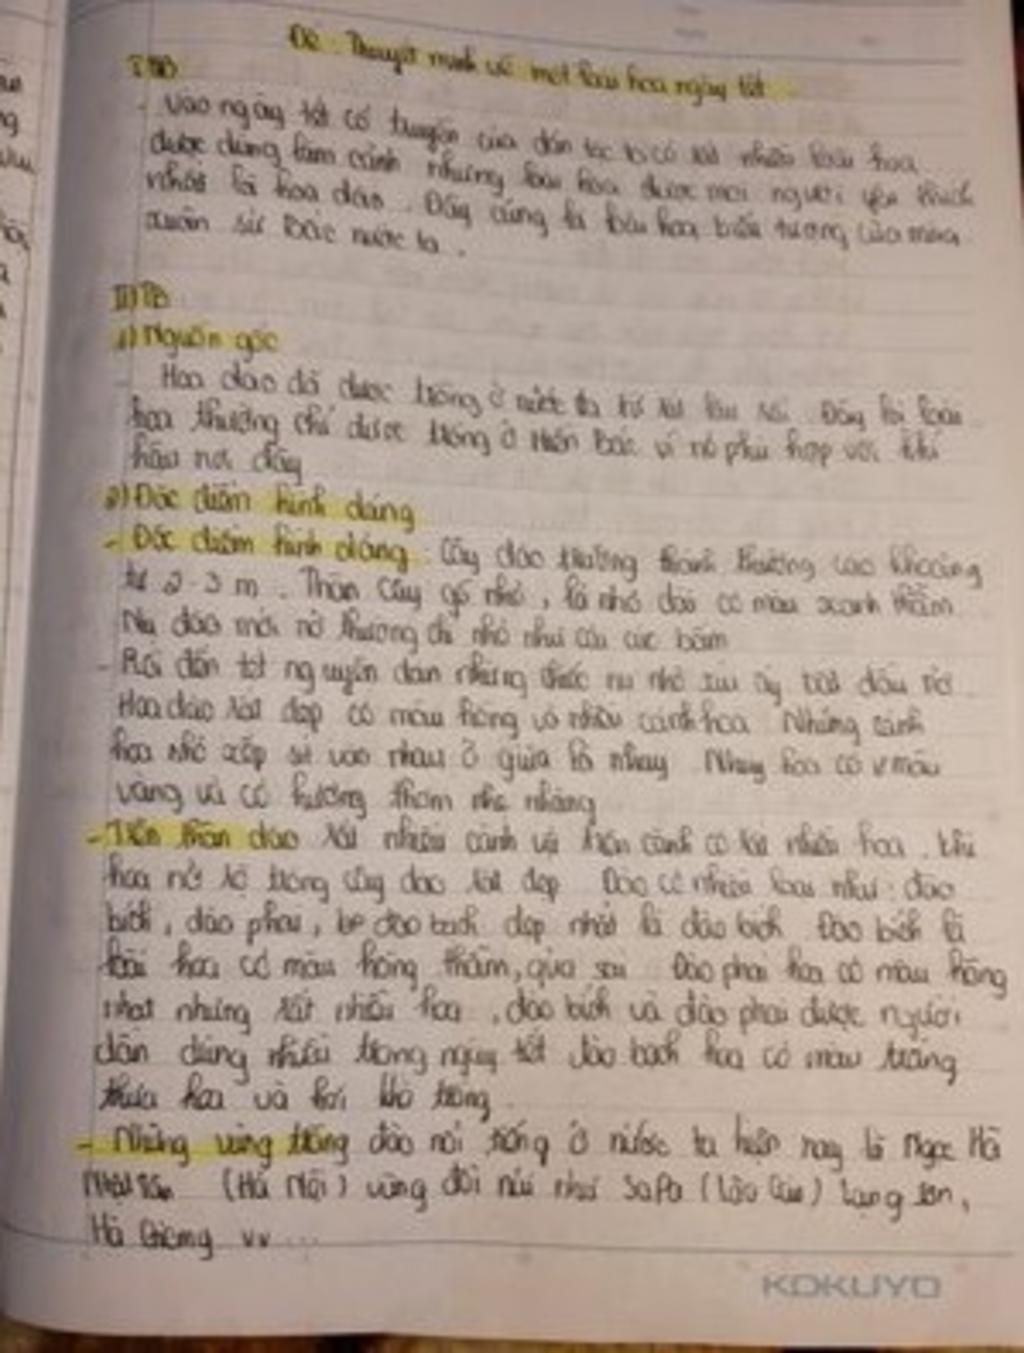 Đề: Thuyết minh về một loài hoa ngày tết
I) MB
- Vào ngày tết cổ truyền của dân tộc ta có rất nhiều loài hoa
được dùng làm cảnh nhưng loài hoa được mọi người yêu thích
nhất là hoa đào. Đây cũng là loài hoa biểu tượng của mùa
xuân sứ Bắc nước ta.
II) TB
1) Nguồn gốc
Hoa đào đã được trồng ở nước ta từ rất lâu rồi. Đây là loài
hoa thường chỉ được trồng ở Miền Bắc vì nó phù hợp với khí
hậu nơi đây
2) Đặc điểm hình dáng
- Đặc điểm hình dáng: Cây đào trưởng thành thường cao khoảng
từ 2-3 m. Thân cây gỗ nhỏ, lá nhỏ dài có màu xanh thẫm
Nụ đào mới nở thường chỉ nhỏ như cúc bấm
- Rồi đến tết nguyên đán những chiếc nụ nhỏ xíu ấy bắt đầu nở
Hoa đào rất đẹp có màu hồng và nhiều cánh hoa Những cánh
hoa nhỏ xếp sít vào nhau ở giữa là nhụy Nhụy hoa có màu
vàng và có hương thơm nhẹ nhàng
- Trên thân đào rất nhiều cành và trên cành có rất nhiều hoa. Khi
hoa nở rộ trông cây đào rất đẹp Đào có nhiều loại như: đào
bích, đào phai, đào bạch đẹp nhất là đào bích Đào bích là
loài hoa có màu hồng thẫm, Đào phai hoa có màu hồng
nhạt nhưng rất nhiều hoa, đào bích và đào phai được người
dân dùng nhiều trong ngày tết đào bạch hoa có màu trắng
thưa hoa và hơi khó trồng
- Những vùng trồng đào nổi tiếng ở nước ta hiện nay là Ngọc Hà
Nhật Tân (Hà Nội) vùng đồi núi như SaPa (Lào Cai) Lạng Sơn,
Hà Giang v.v...
KOKUYO